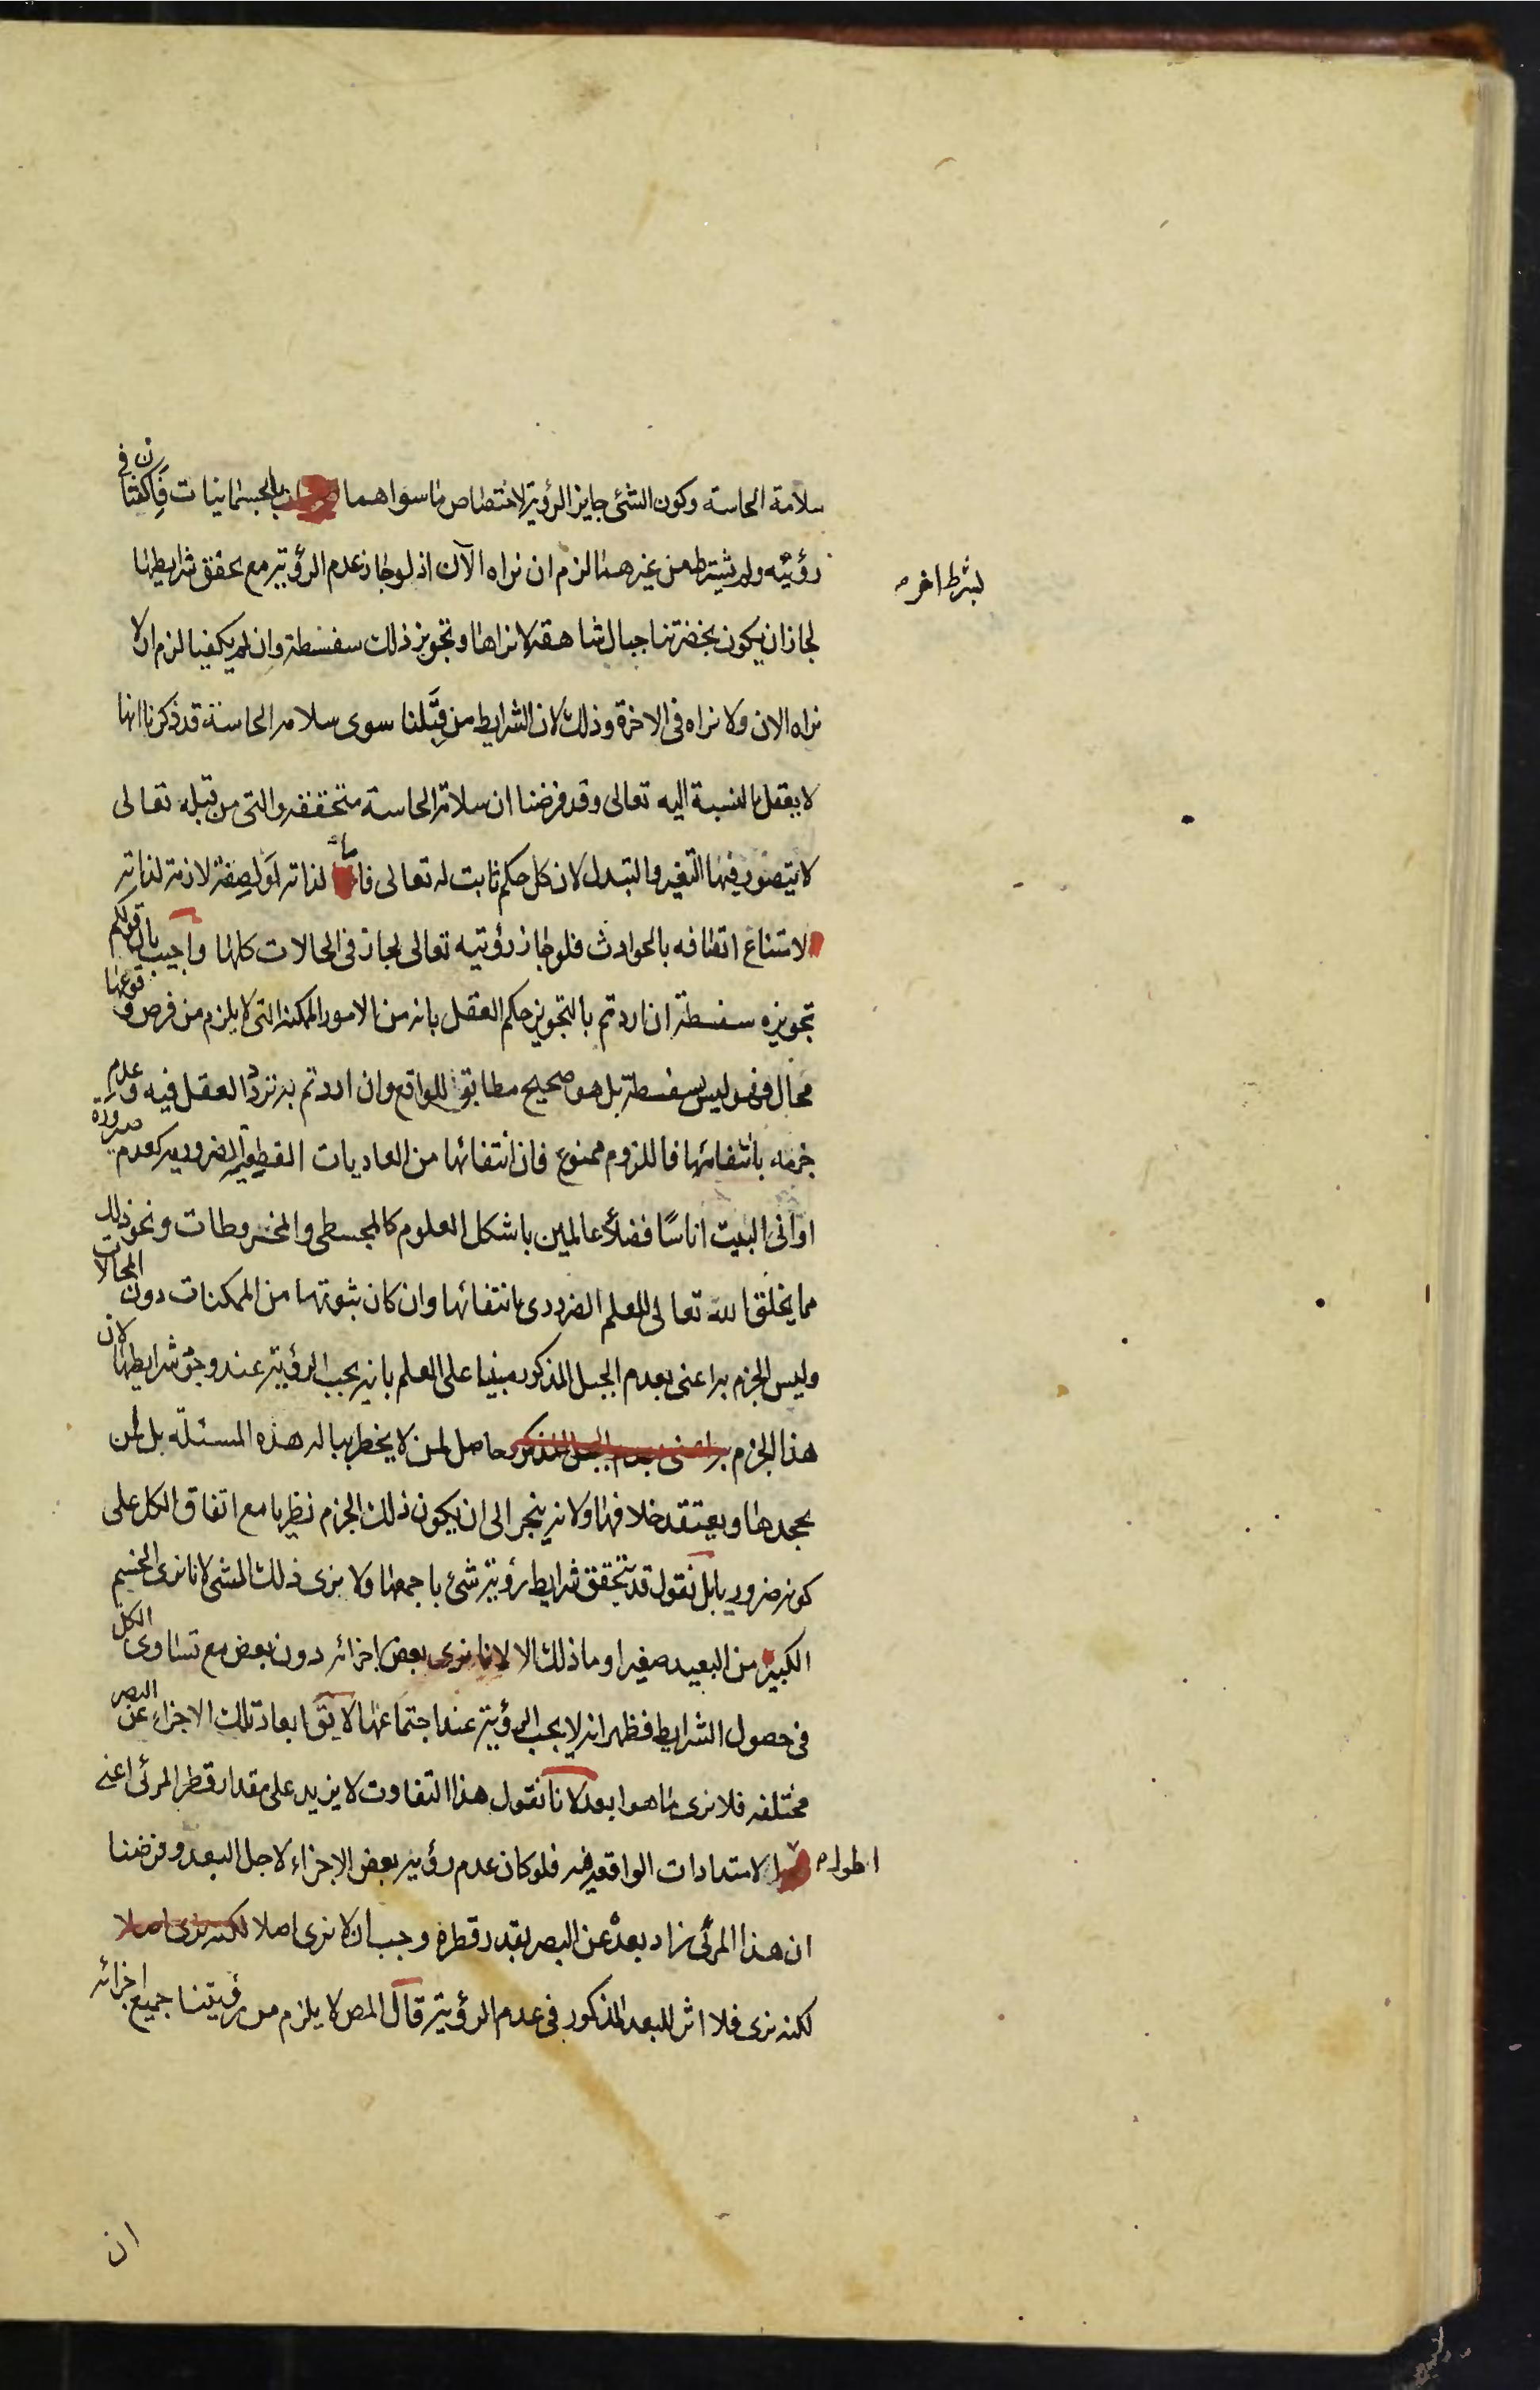 سلامة الحاسه وكون الشئ جايز الرؤية لاختصاص ما سواهما بالجسمانيات فان كفتا في
رؤيته ولم يشترط من غيرهما لزم ان نراه الآن اذ لو جاز عدم الرؤية مع تحقق شرايطها
بشرط اخر
لجاز ان يكون بحضرتنا جبال شاهقة لا نراها وتجويز ذلك سفسطة وان لم يكفيا لزم ان لا
نراه الان ولا نراه فى الاخرة وذلك لان الشرايط من قِبَلنا سوى سلامة الحاسة قد ذكرنا انها
لا يعقل بالنسبة اليه تعالى وقد فرضنا ان سلامة الحاسة متحققه والتى من قبله تعالى
لا يتصور فيها التغير والتبدل لان كل حكم ثابت له تعالى فاما لذاته او لصفة لازمة لذاته
لامتناع اتصافه بالحوادث فلو جاز رؤيتيه تعالى لجاز فى الحالات كلها واجيب بان قولكم
تجويزه سفسطة ان اردتم بالتجويز حكم العقل بانه من الامور الممكنة التى لا يلزم من فرض وقوعها
محال فهو ليس بسفسطة بل هو صحيح مطابق للواقع وان اردتم به تردد العقل فيه وعدم
جزمه بانتفائها فاللزوم ممنوع فان انتفائها من العاديات القطعية الضرورية كعدم صيرورة
اوانى البيت اناسًا فضلاء عالمين باشكل العلوم كالمجسطى والمخروطات ونحو ذلك
مما يخلق الله تعالى للعلم الضرورى بانتفائها وان كان ثبوتها من الممكنات دون المحالات
وليس الجزم به اعنى بعدم الجبل المذكور مبنيا على العلم بانه يجب الرؤية عند وجود شرايطها لان
هذا الجزم به اعنى بعدم الجبل المذكور حاصل لمن لا يخطر بباله هذه المسئله بل لمن
يجحدها ويعتقد خلافها ولانه ينجر الى ان يكون ذلك الجزم نظريا مع اتفاق الكل على
كونه ضروريا بل نقول قد يتحقق شرايط رؤية شئ باجمعها ولا نرى ذلك الشئ لانا نرى الجسم
الكبير من البعيد صغيرا وما ذلك الا لانا نرى بعض اجزائه دون بعض مع تساوى الكل
فى حصول الشرايط فظهر انه لا يجب الرؤية عند اجتماعها لا يق ابعاد تلك الاجزاء عن البصر
مختلفه فلا نرى ما هو ابعد لانا نقول هذا التفاوت لا يزيد على مقدار قطر المرئى اعنى
اطول الامتدادات الواقعه فيه فلو كان عدم رؤية بعض الاجزاء لاجل البعد وفرضنا
ان هذا المرئى زاد بعده عن البصر بقدر قطره وجب ان لا نرى اصلا لكنه نرى اصلا
لكنه نرى فلا اثر للبعد المذكور فى عدم الرؤية قال المص لا يلزم من رؤيتنا جميع اجزائه
ان